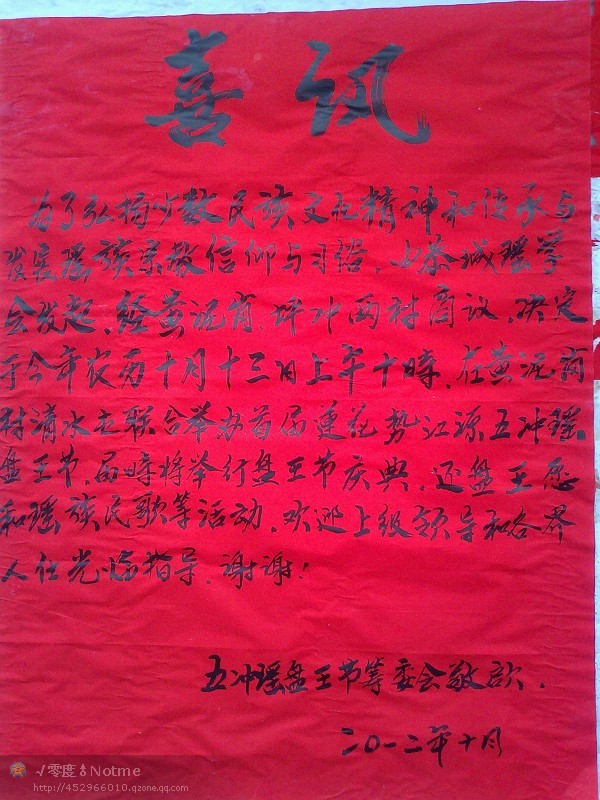 喜讯
为了弘扬少数民族文化精神和传承与
发展瑶族宗教信仰与习俗,由恭城瑶学
会发起,经黄泥岗、坪冲两村商议,决定
于今年农历十月十三日上午十時,在黄泥岗
村清水立联合举办首届莲花势江源五冲瑶
盘王节,届時将举行盘王节庆典,还盘王愿
和瑶族民歌等活动,欢迎上级领导和各界
人仕光临指导,谢谢!
五冲瑶盘王节筹委会敬
二〇一二年十月
√零度♂Notme
http://452966010.qzone.qq.com